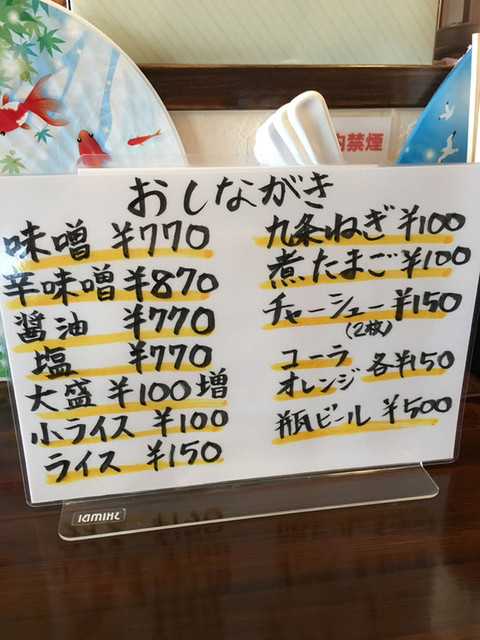 おしながき
味噌 ¥770
辛味噌 ¥870
醤油 ¥770
塩 ¥770
大盛 ¥100増
小ライス ¥100
ライス ¥150
九条ねぎ ¥100
煮たまご ¥100
チャーシュー ¥150
(2枚)
コーラ
オレンジ 各¥150
瓶ビール ¥500
内禁煙